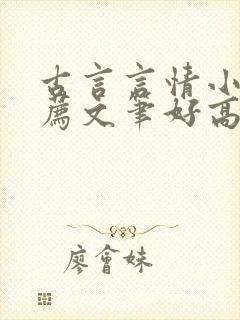 古言言情小
薦文筆好高
廖會妹